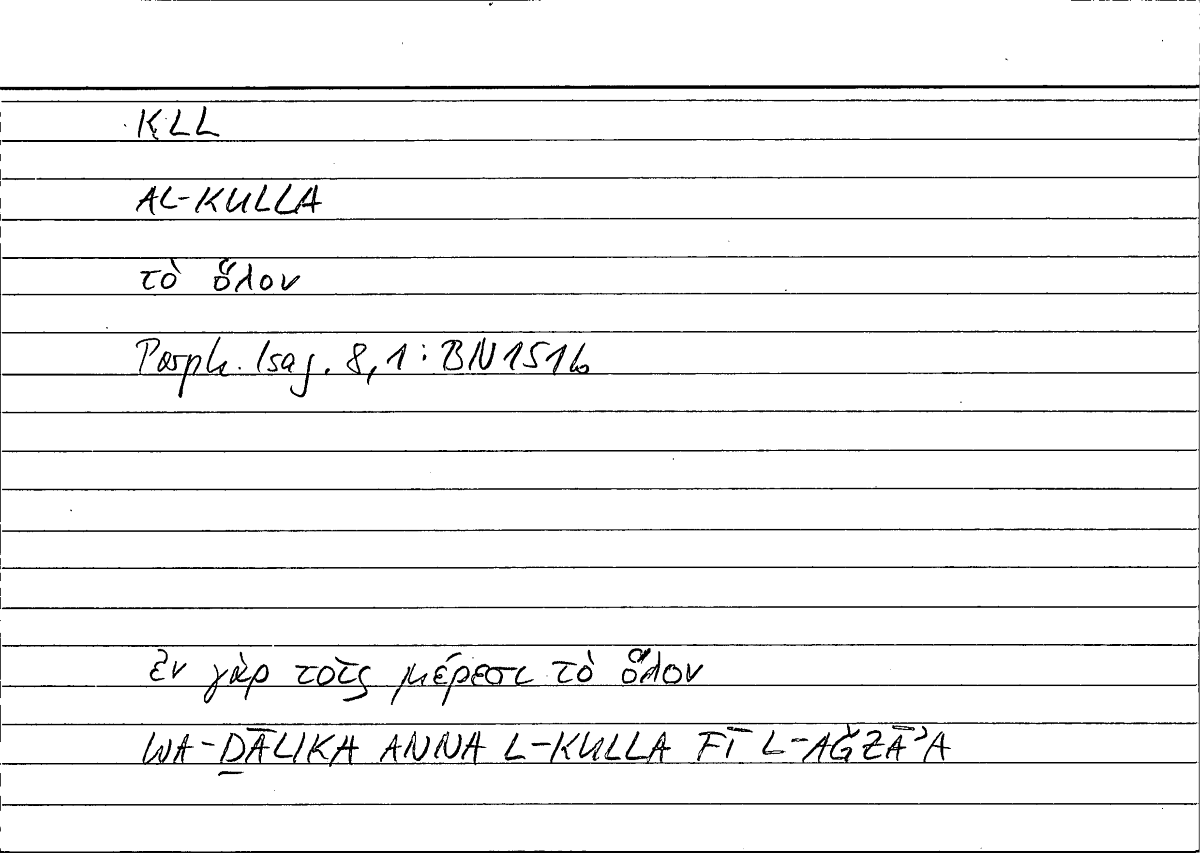 KLL
AL-KULLA
τὸ ὅλον
Porph. Isag. 8,1 : BN 151b
ἐν γὰρ τοῖς μέρεσι τὸ ὅλον
WA-ḎĀLIKA ANNA L-KULLA FĪ L-AǦZĀʾA